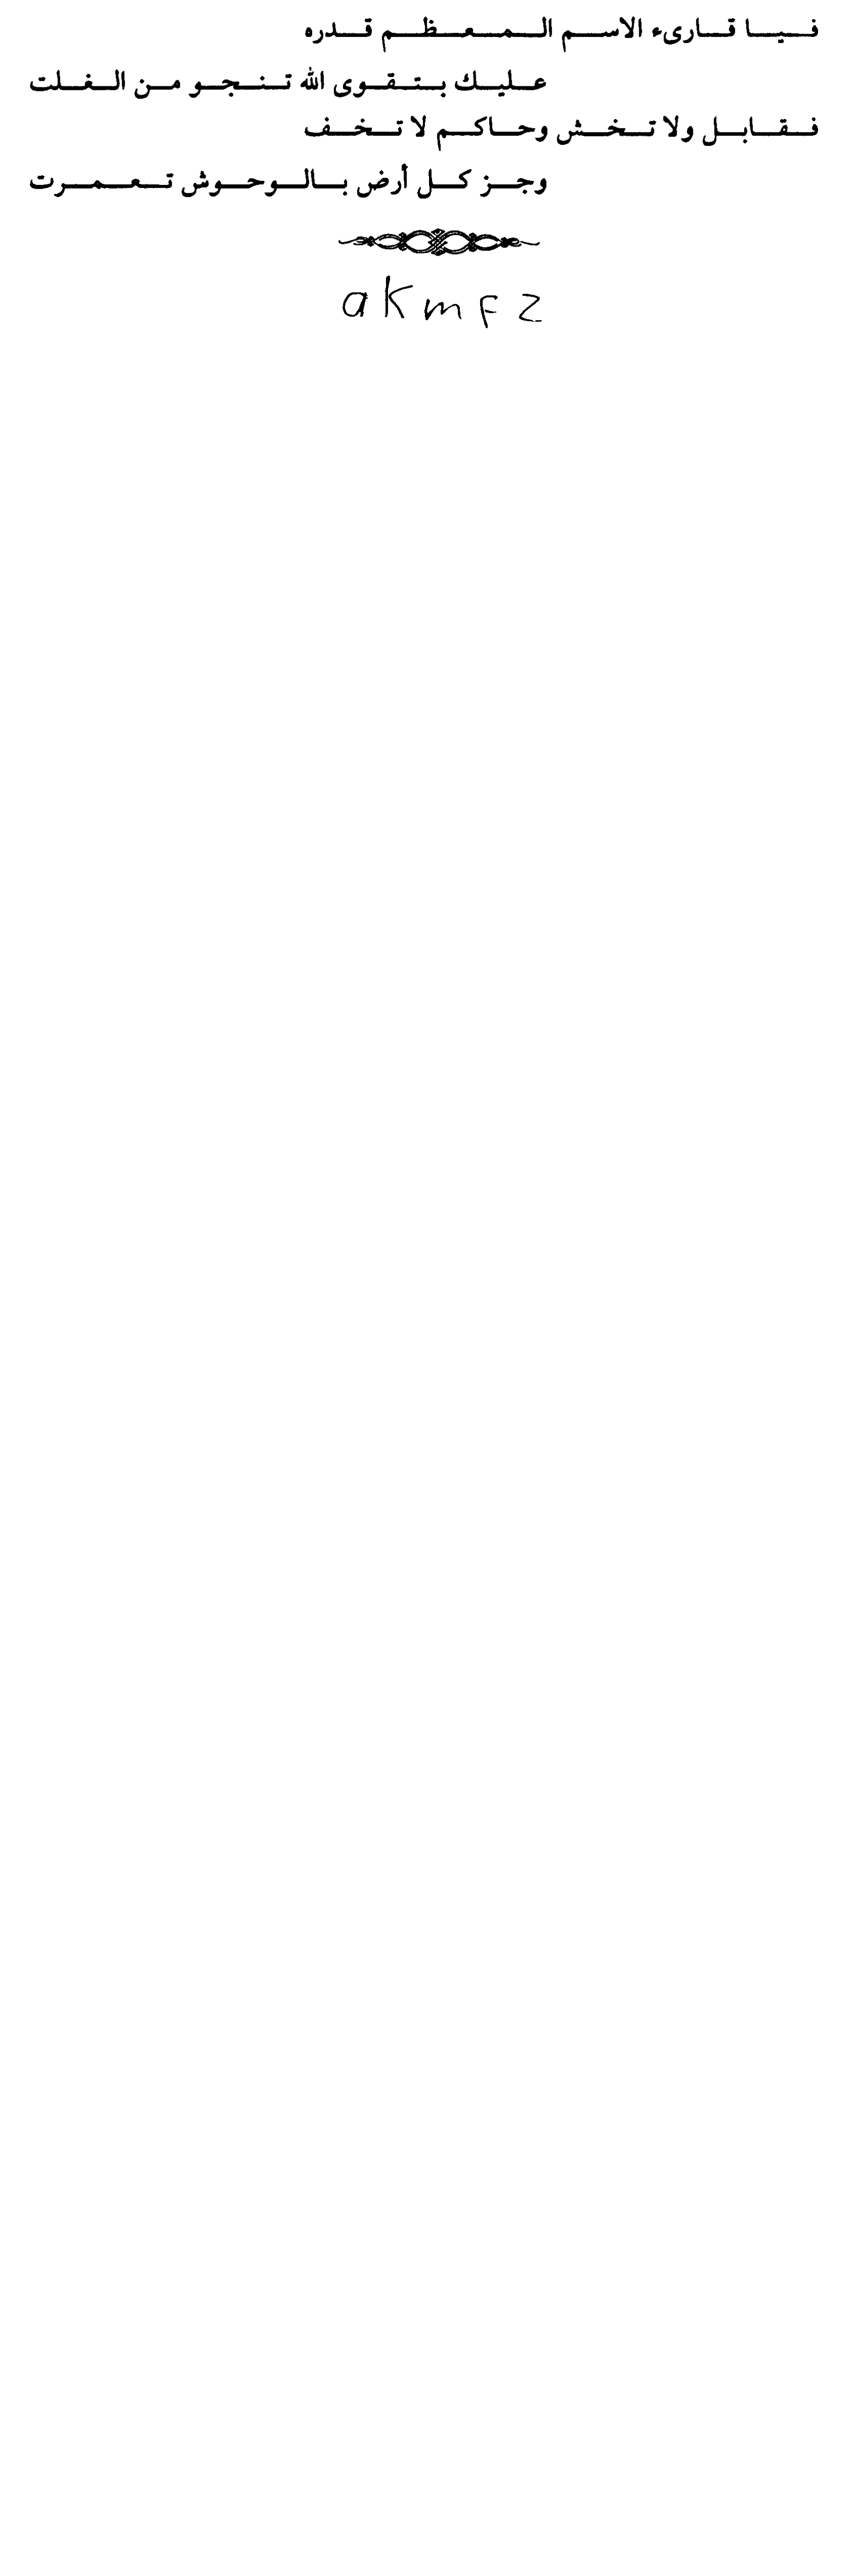 فيا قارىء الاسم المعظم قدره
عليك بتقوى الله تنجو من الغلت
فقابل ولا تخش وحاكم لا تخف
وجز كل أرض بالوحوش تعمرت
a k m f z